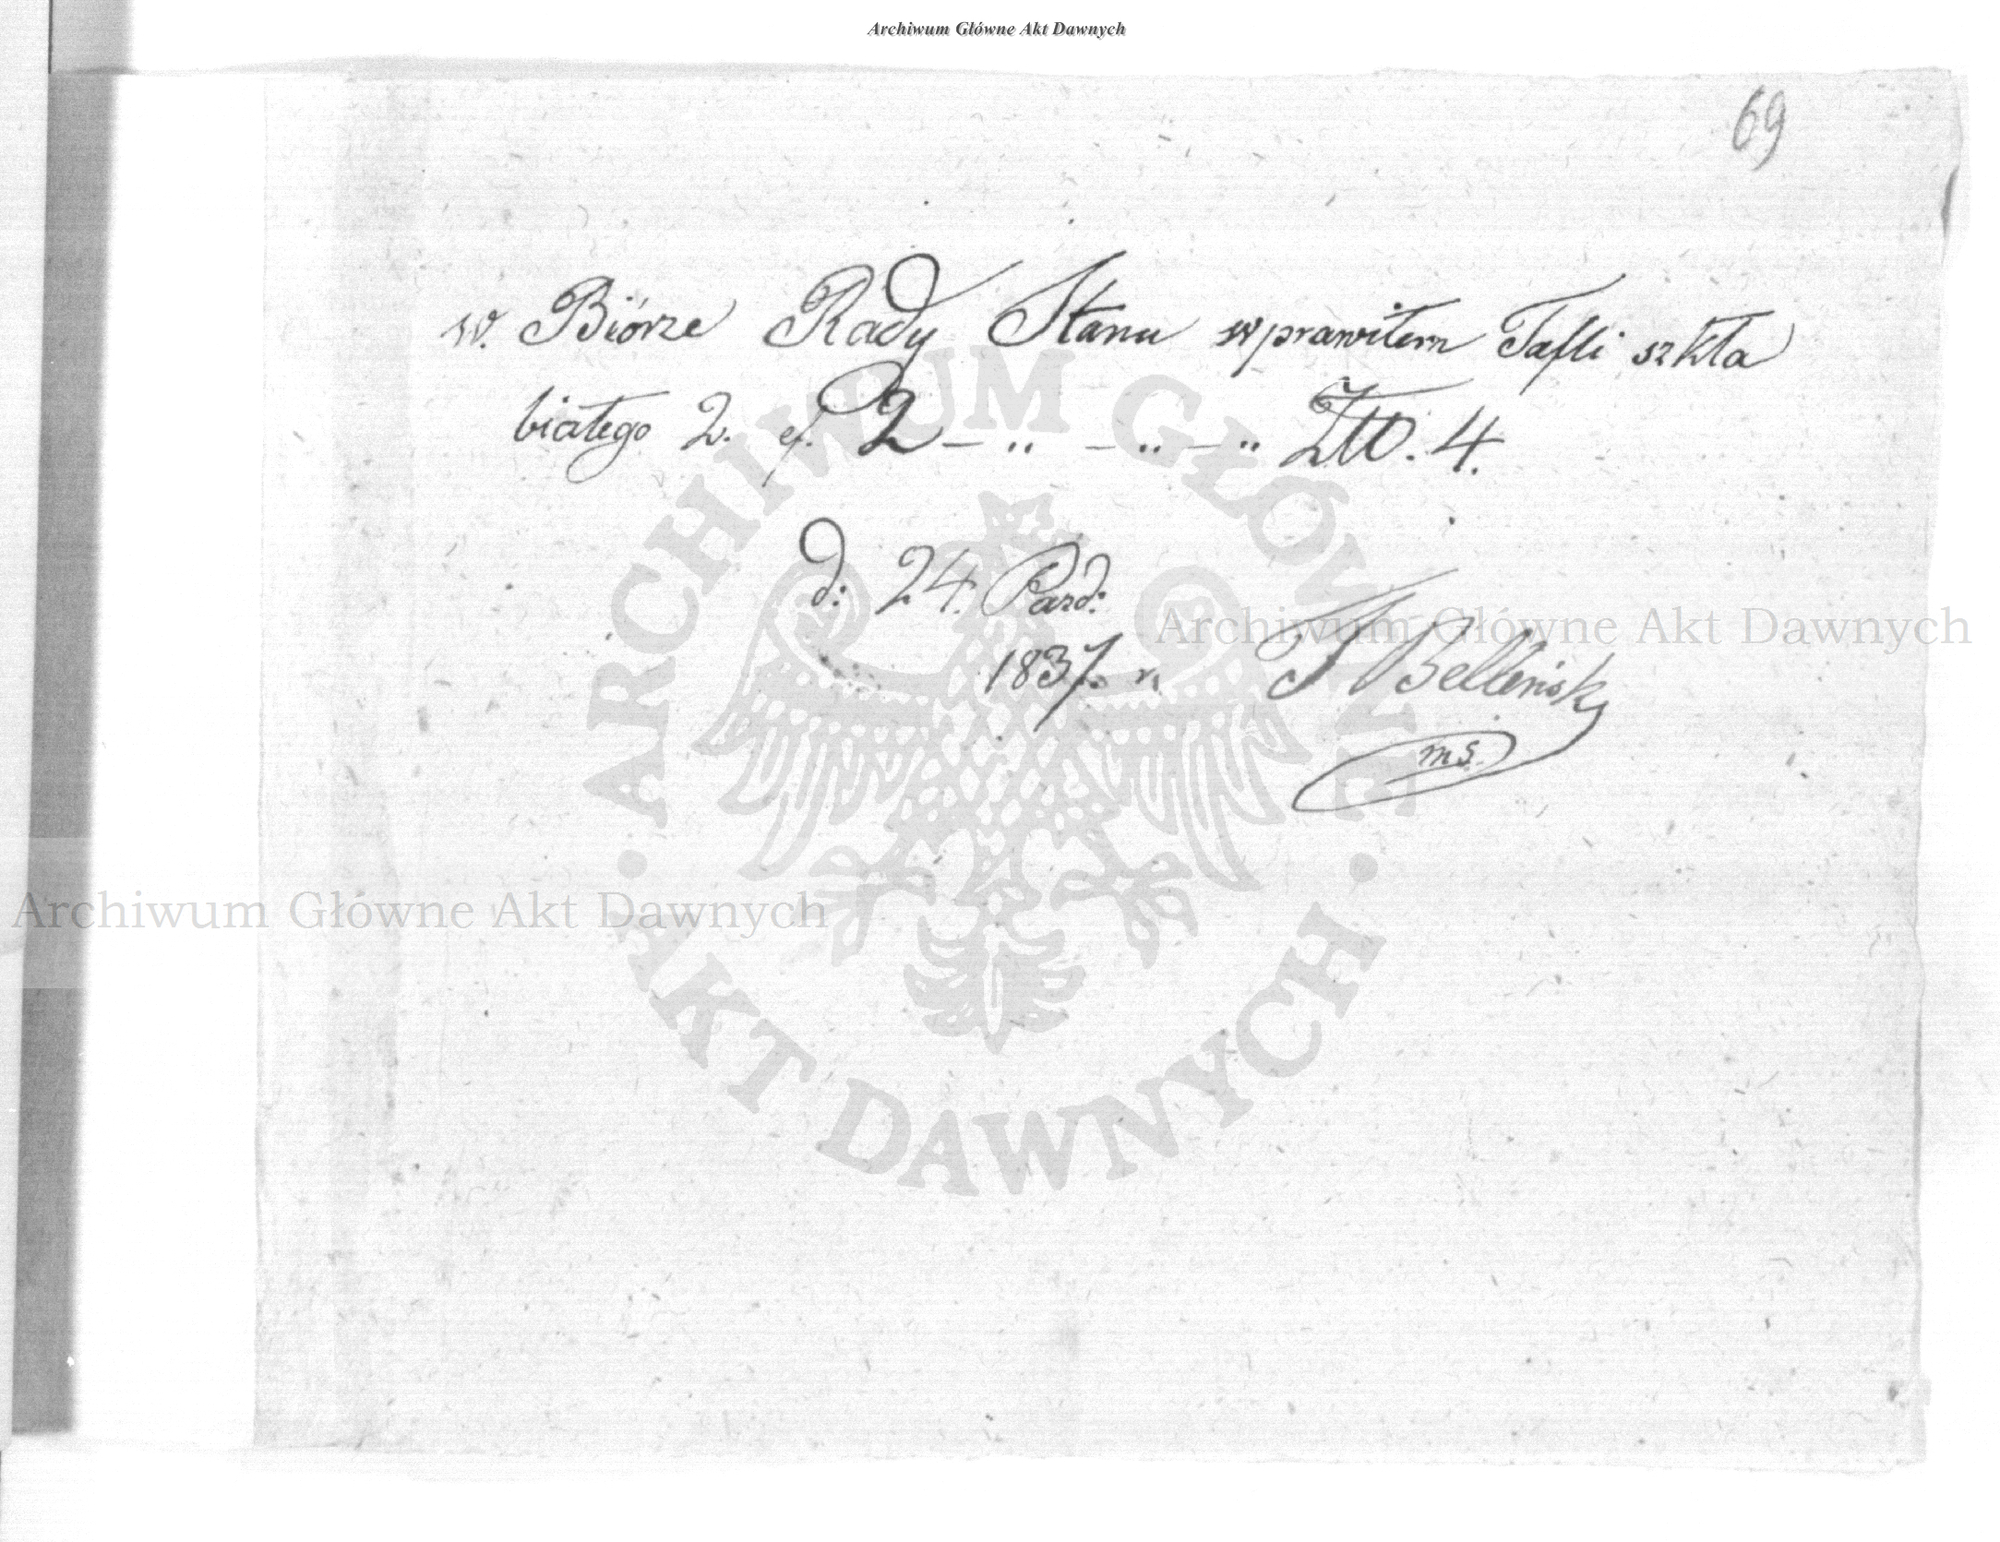 Archiwum Główne Akt Dawnych
69
w. Biórze Rady Stanu wprawiłem Tafli szkła
białego 2. ef. 2 – „ – „ – „ Złł. 4.
d: 24. Pazd:
1837. r.
F Belleński
ms.
Archiwum Główne Akt Dawnych
Archiwum Główne Akt Dawnych
ARCHIWUM GŁÓWNE
AKT DAWNYCH